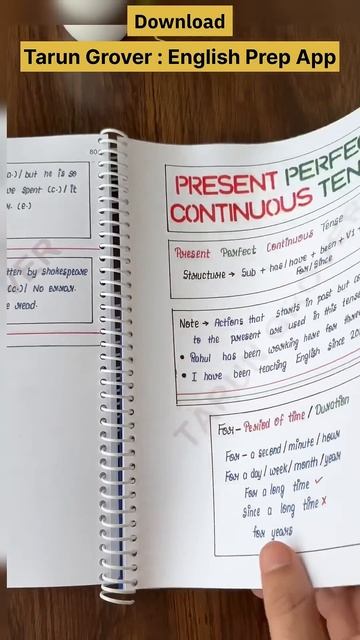 Download
Tarun Grover : English Prep App
80
o.)/ but he is so
ve spent (c.)/ it
(e.)
tten by shakespeare
(c.)/ No error.
e read.
PRESENT PERFEC
CONTINUOUS TEN
Present Perfect Continuous Tense
Structure → Sub + has/have + been + V1 +
For/Since
Note → Actions that starts in past but co
to the present are used in this tense
• Rahul has been working here for three
• I have been teaching English since 20
For – Period of time / Duration
For – a second/minute/hour
For a day/week/month/year
For a long time ✓
Since a long time ×
for years